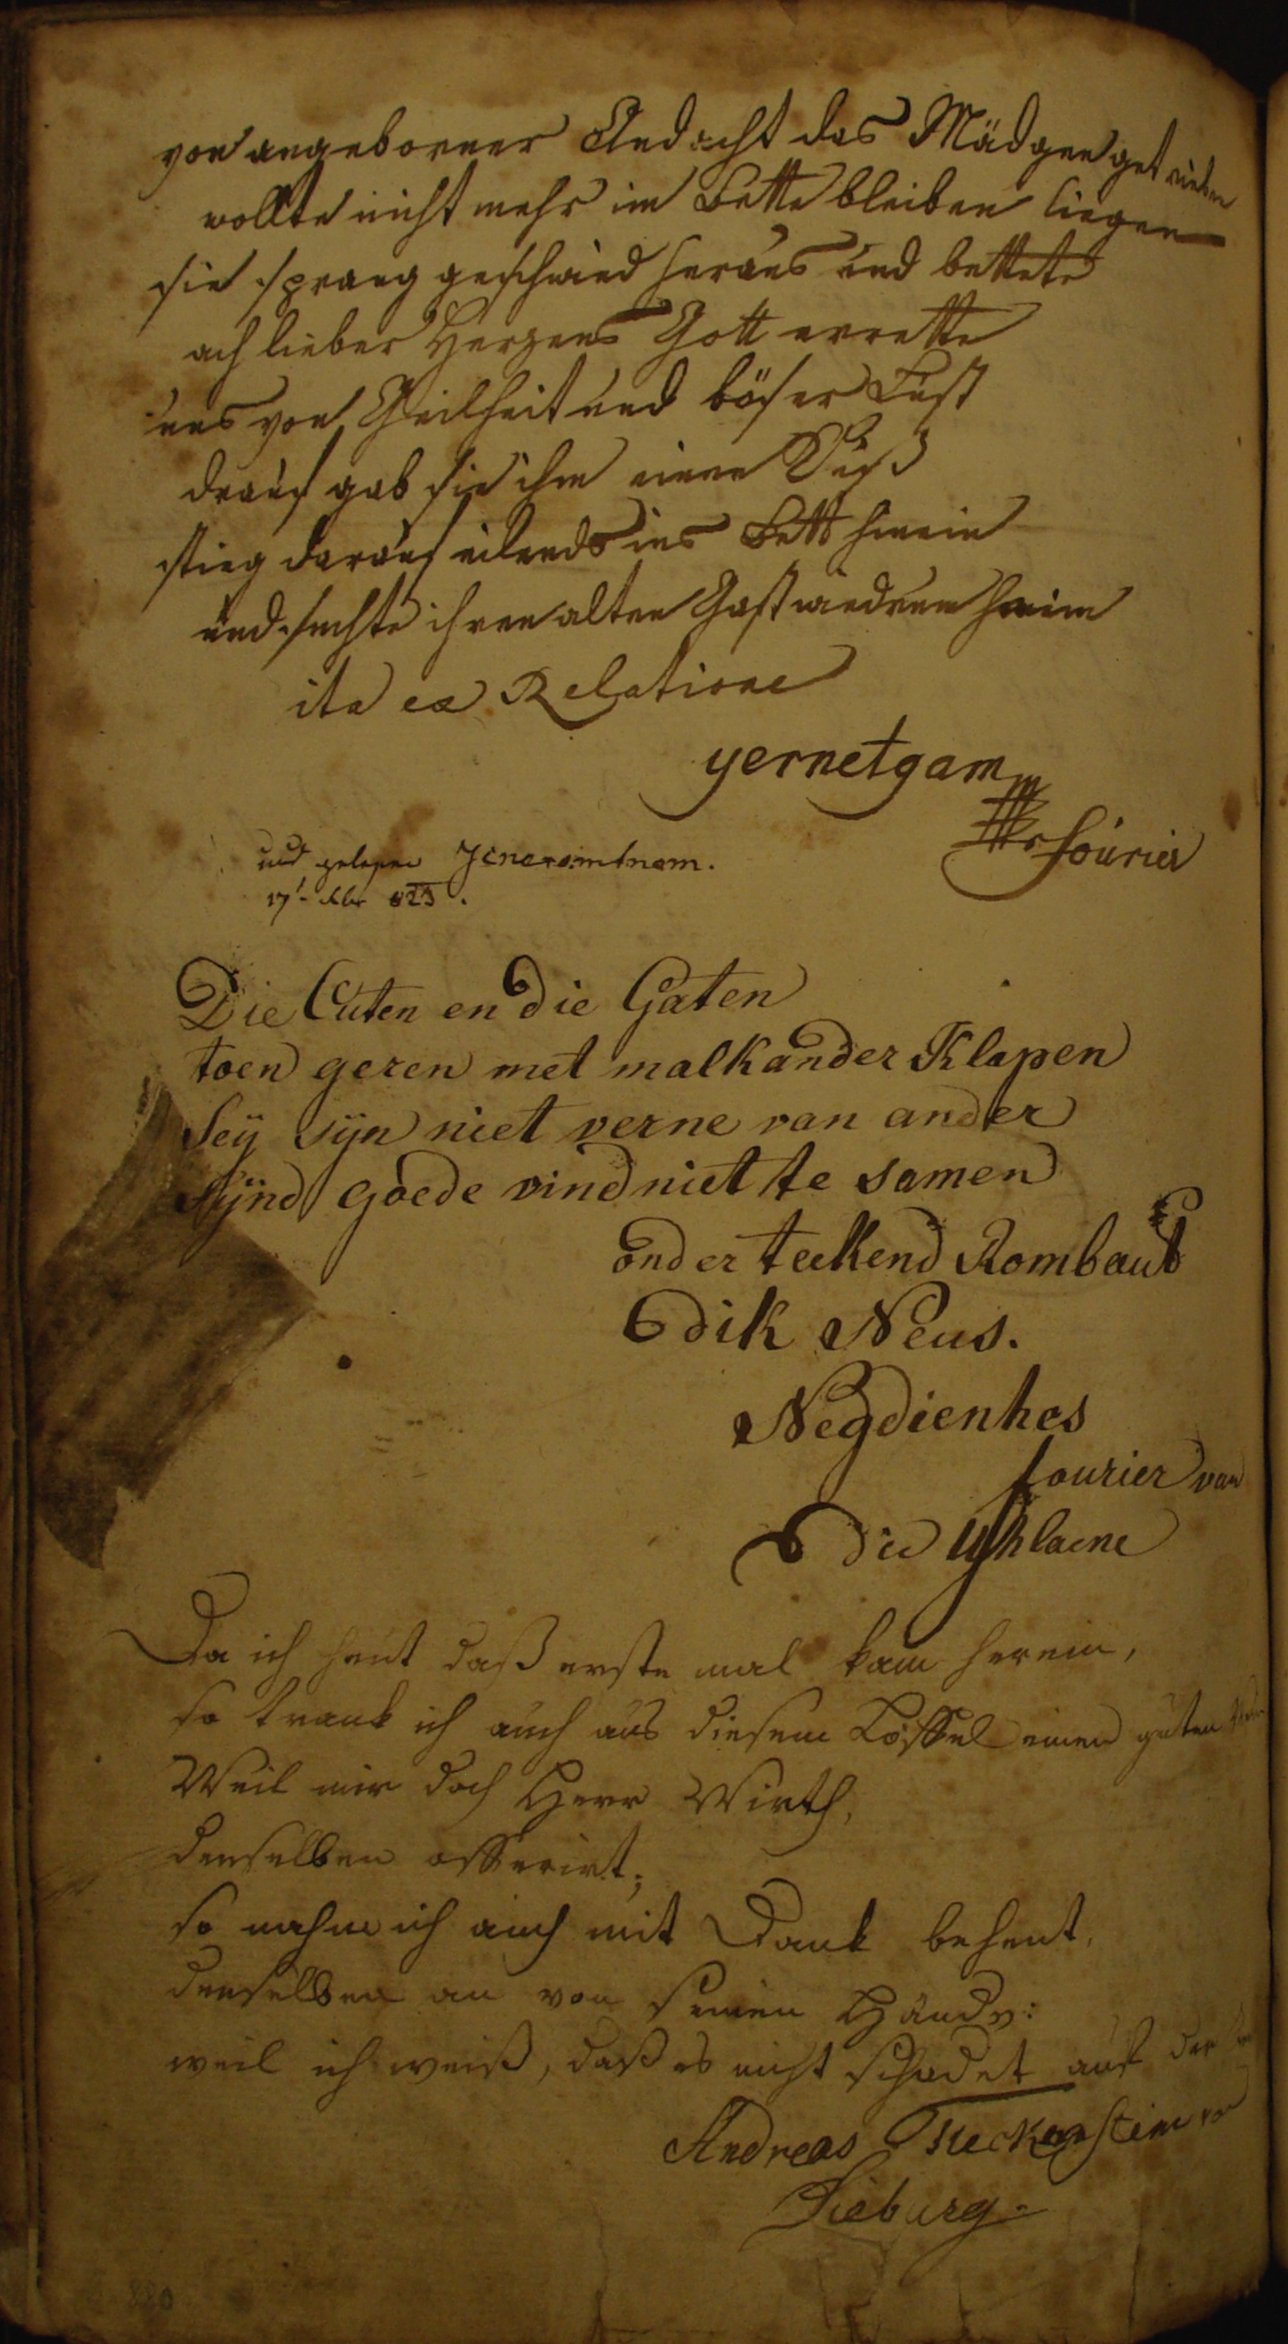 von angeborner Andacht das Mädgen getrieben
wollte nicht mehr im Bette bleiben liegen
sie sprang geschwind heraus und bettete
ach lieber Herzens Gott errette
uns von Geilheit und böser Lust
drauf gab sie ihm einen Kuß
stieg darauf eilends ins Bett hinein
und suchte ihren alten Gast wiedrum heim
ita ex Relatione
yernetgam
Fourier
und gelesen
17t 823.
Die Cuten en die Gaten
toen geren met malkander Klapen
Seÿ sÿn niet verne van ander
Sÿnd goede vind niet te samen
onder teekend Rombaut
dik Neus.
Negdienhos
fourier van
die Uhlaene
Da ich heut daß erste mal kam herein,
so trank ich auch aus diesem Löffel einen guten
Weil mir doch Herr Wirth,
denselben offerirt;
so nahm ich auch mit Dank behent,
denselben an von seinen Händ:
weil ich weiß, daß es nicht schadet auf der
Andreas Steckenstein von
Dieburg.
880